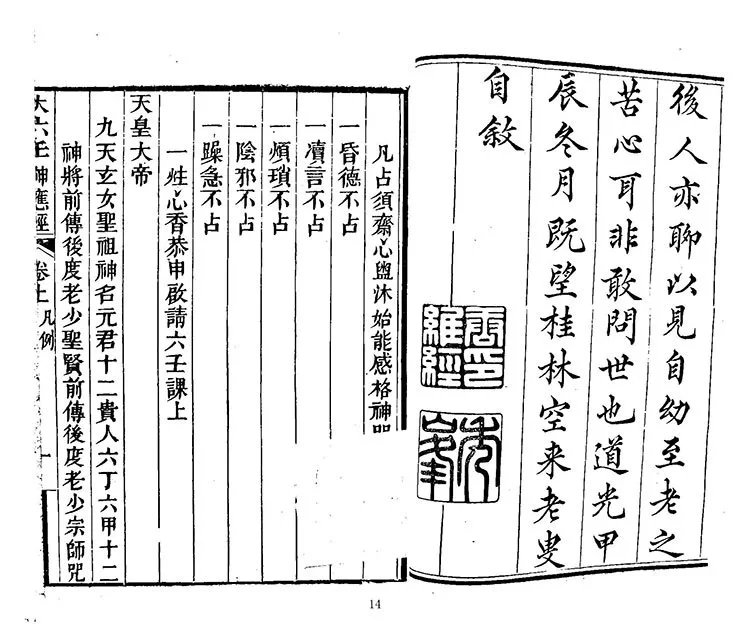 後人亦聊以見自幼至老之
苦心耳非敢問世也道光甲
辰冬月既望桂林空来老叟
自敘
唐印維經
秀峯
凡占須齋心盥沐始能感格神
一昏德不占
一凟言不占
一煩瑣不占
一陰邪不占
一躁急不占
一炷心香恭申啟請六壬課上
天皇大帝
九天玄女聖祖神名元君十二貴人六丁六甲十二
神將前傳後度老少聖賢前傳後度老少宗師咒
大六壬神應經 卷上 凡例
14